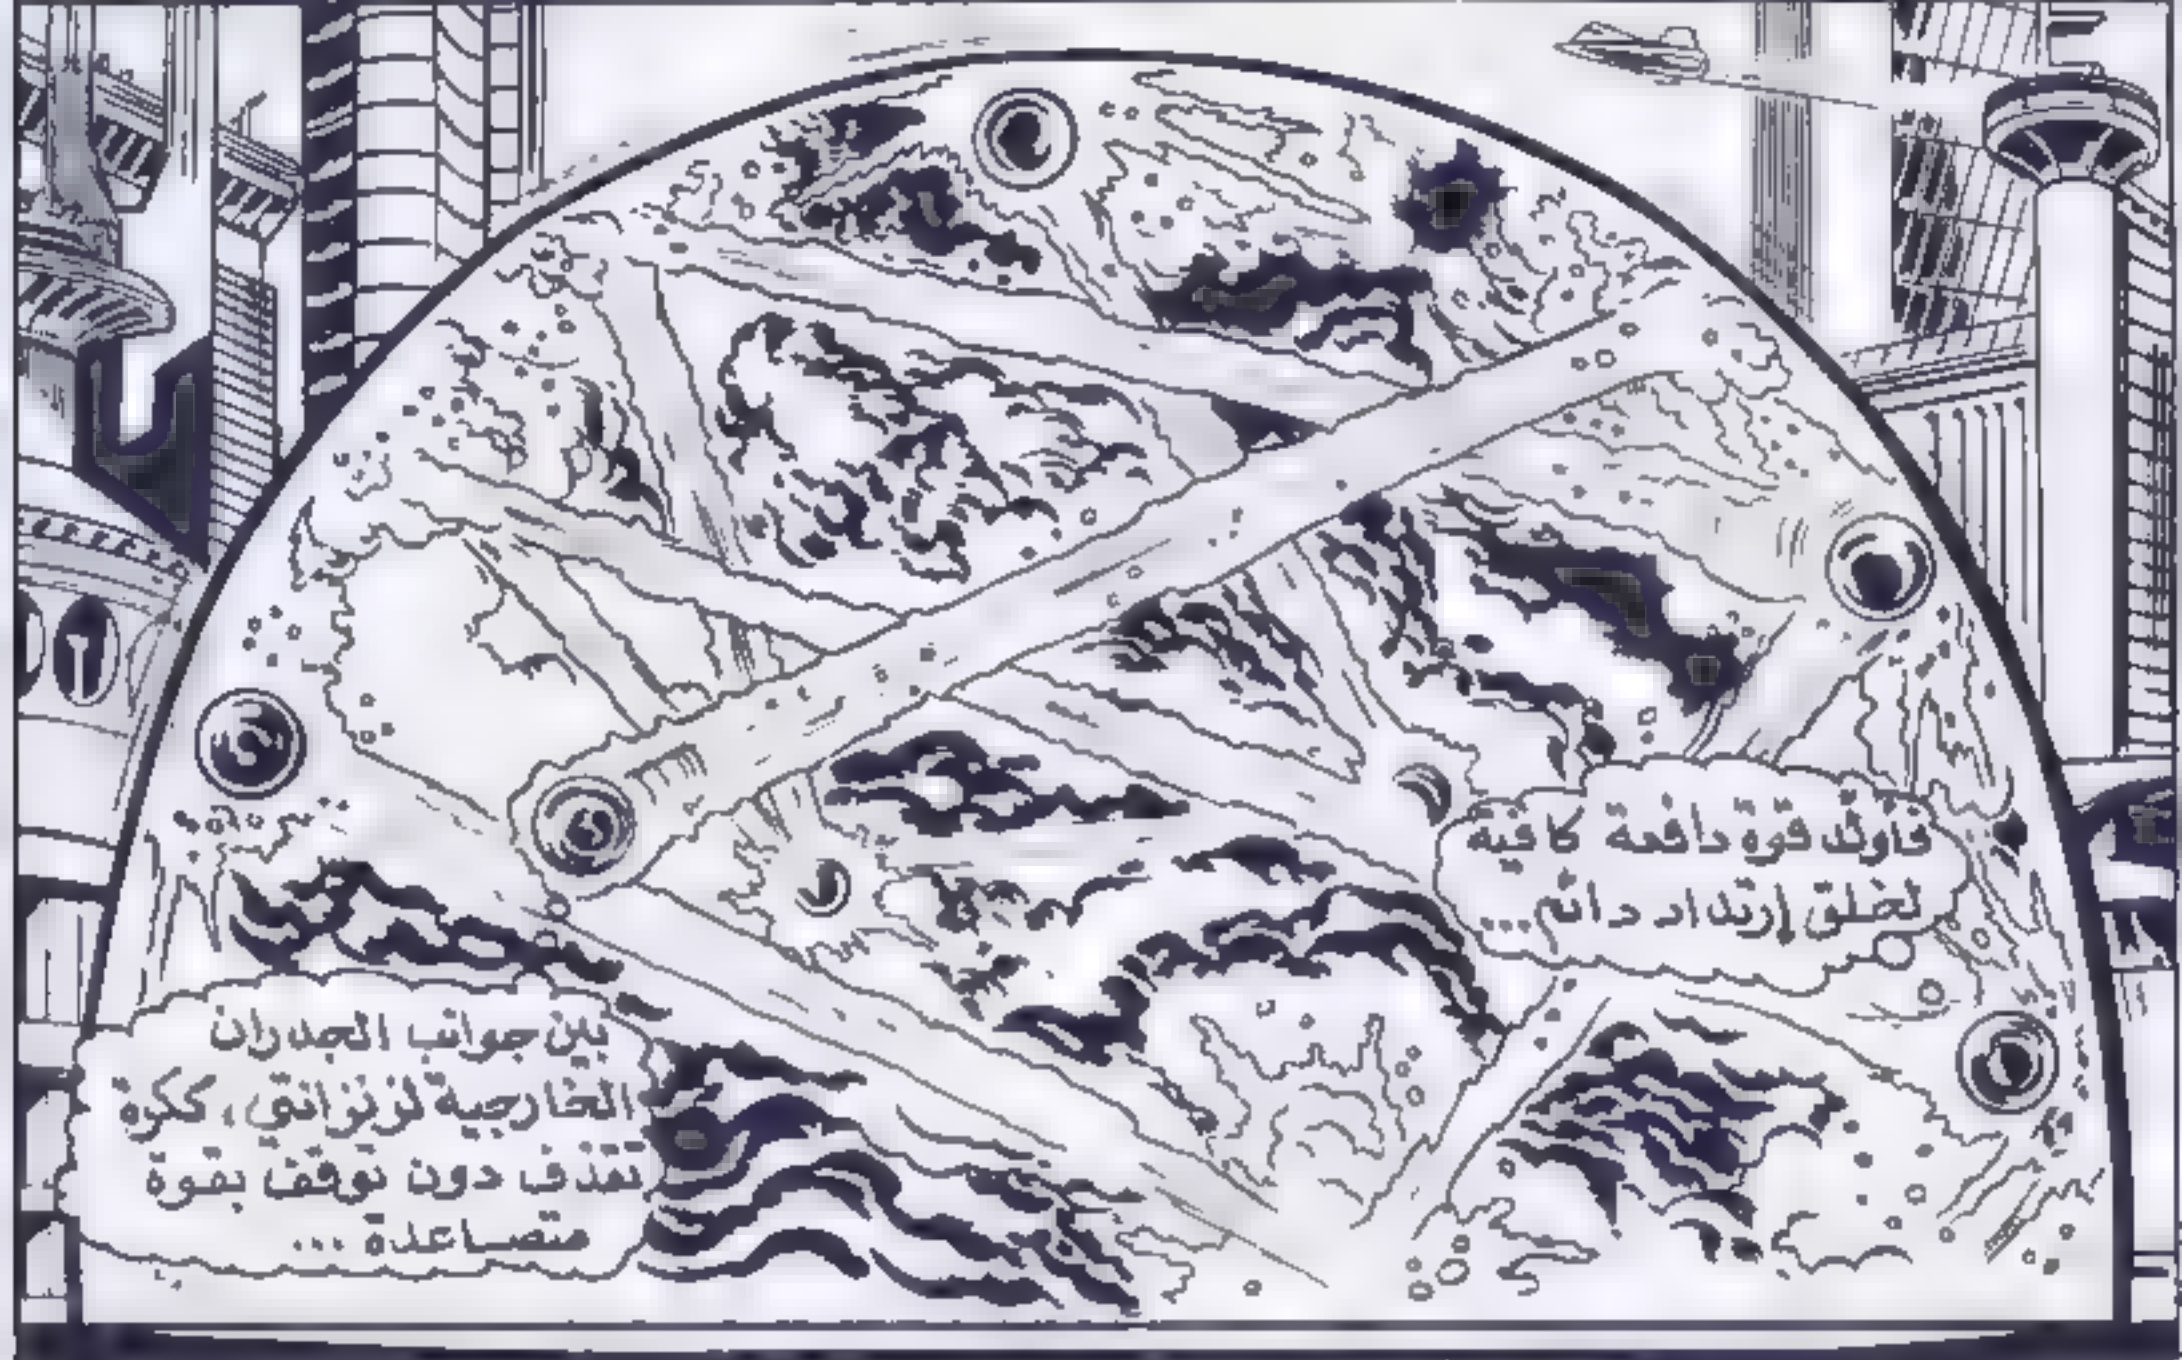 فأولّد قوة دافعة كافية
لخلق إرتداد دائم...
بين جوانب الجدران
الخارجية لزنزانتي، ككرة
تقذف دون توقف بقوة
متصاعدة ...